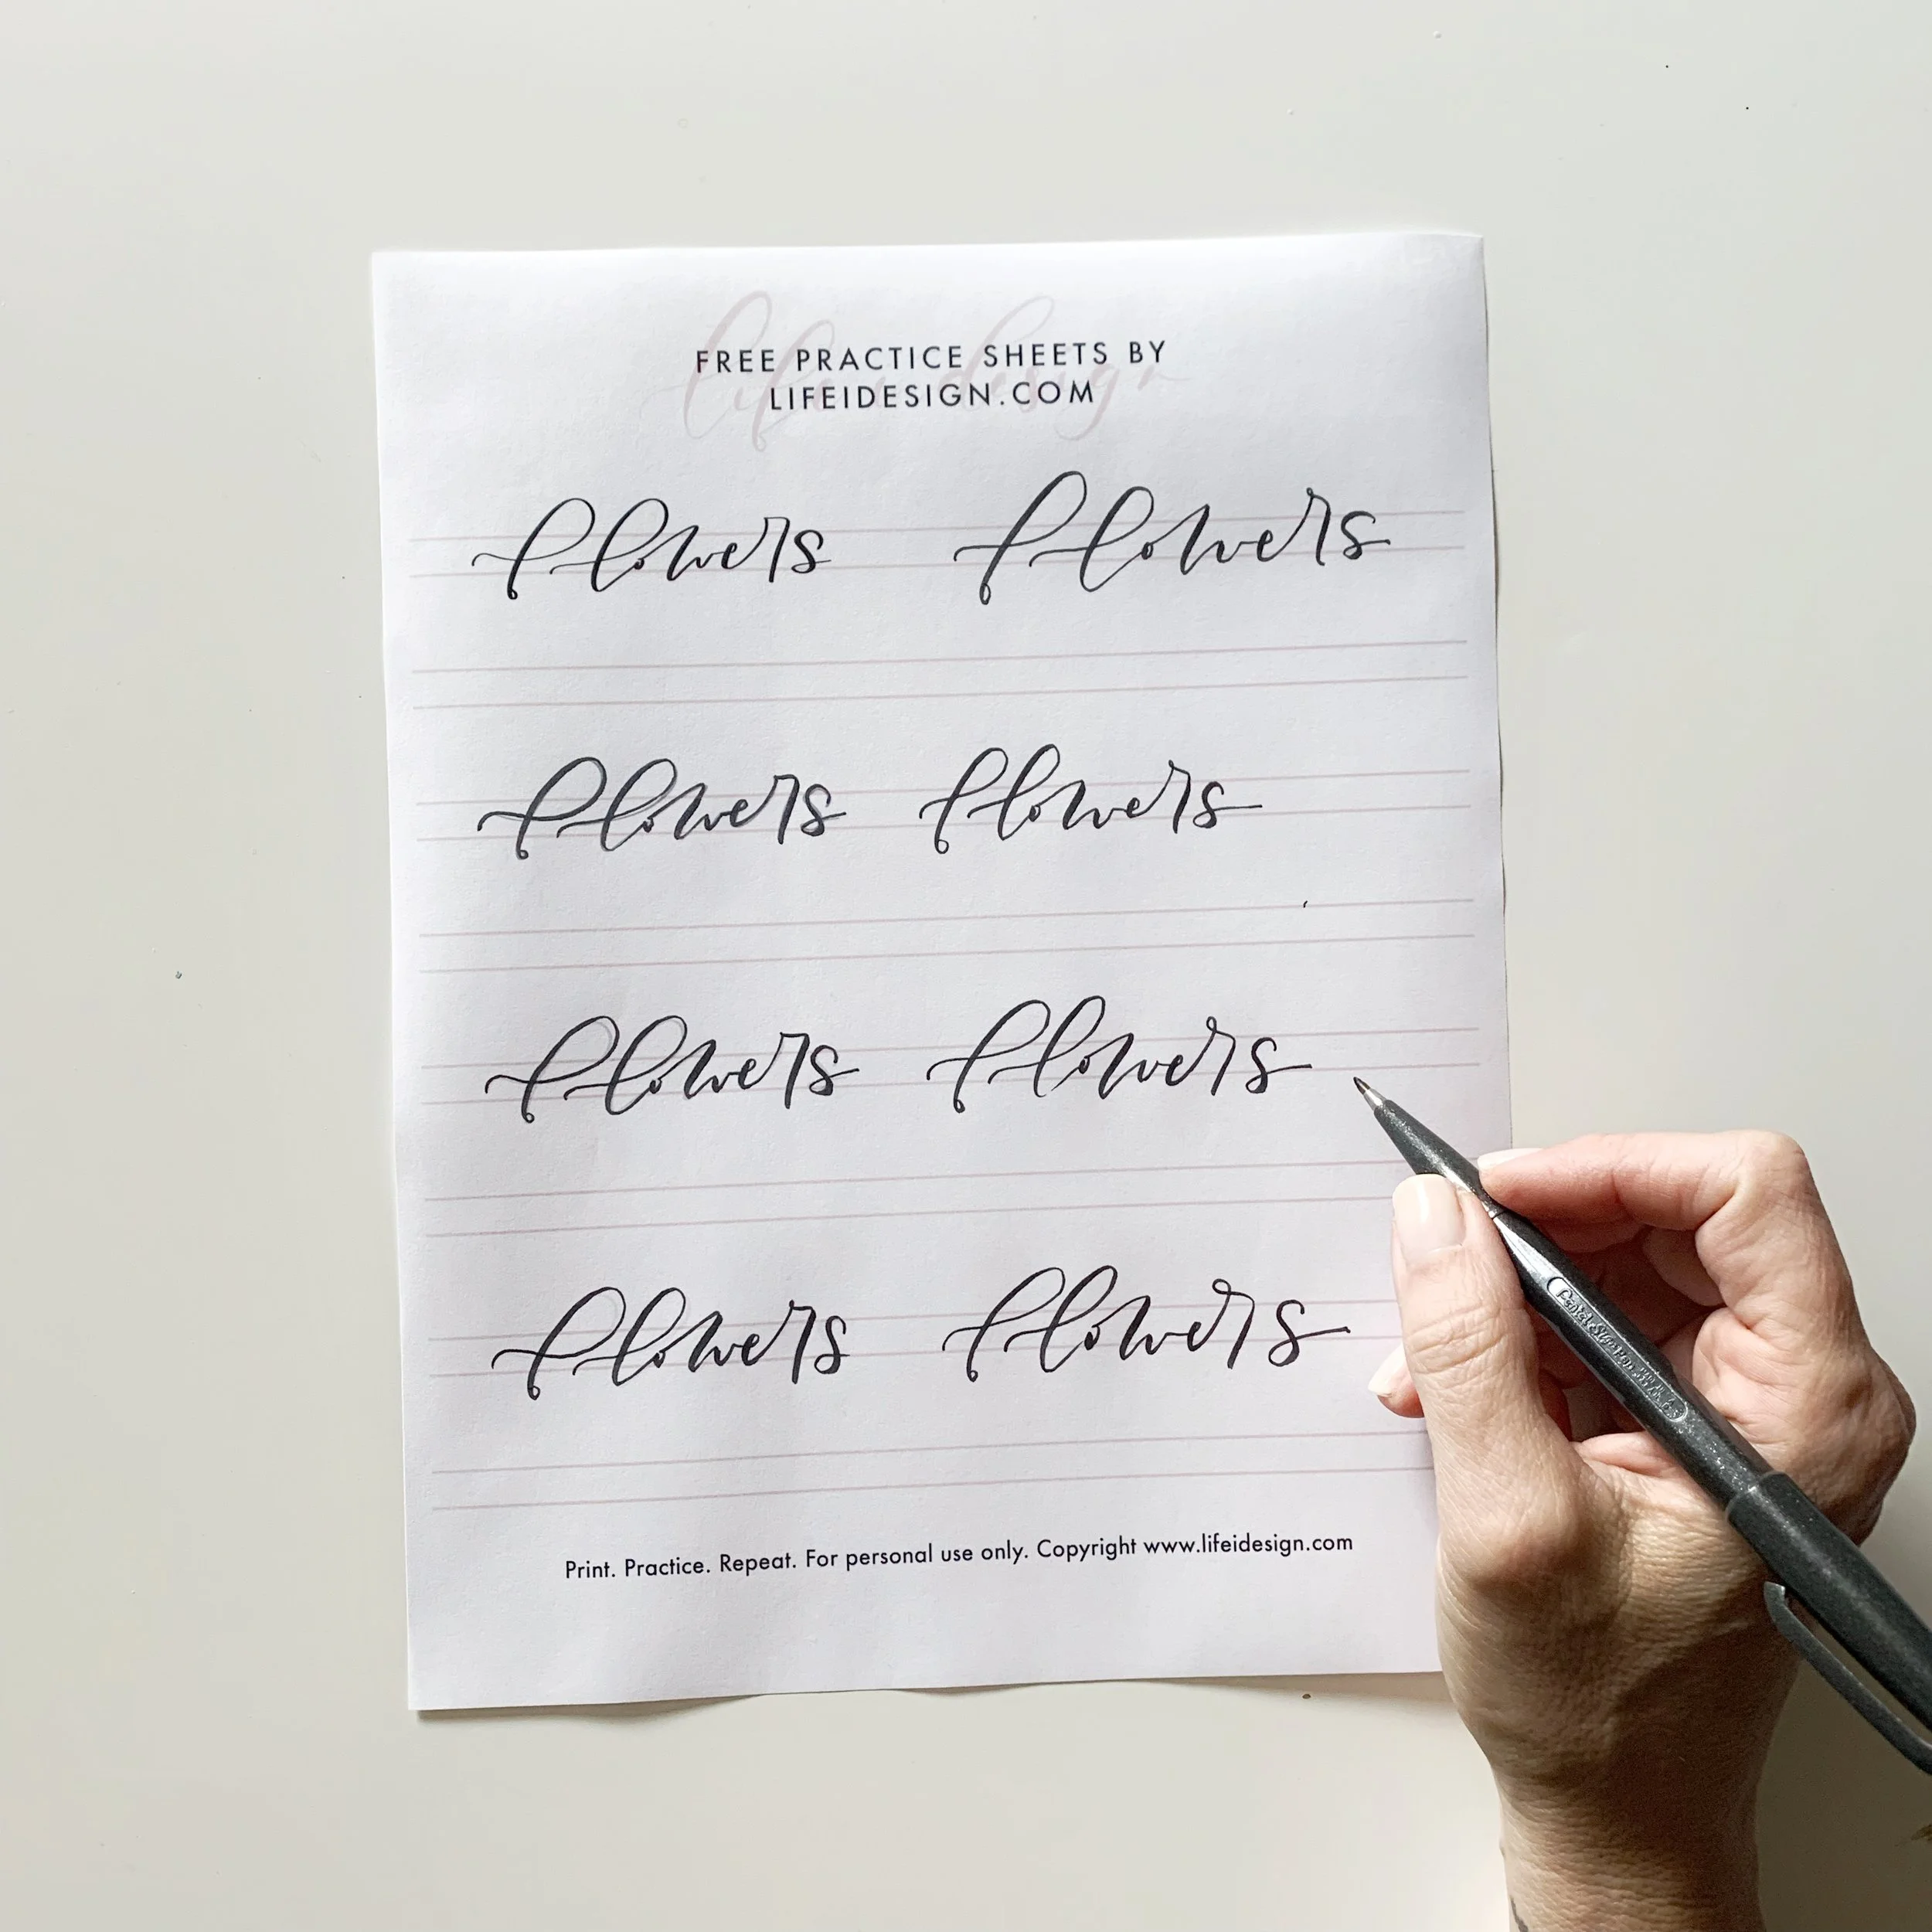 FREE PRACTICE SHEETS BY
LIFEIDESIGN.COM
flowers flowers
flowers flowers
flowers flowers
flowers flowers
Print. Practice. Repeat. For personal use only. Copyright www.lifeidesign.com
Pentel Sign Pen